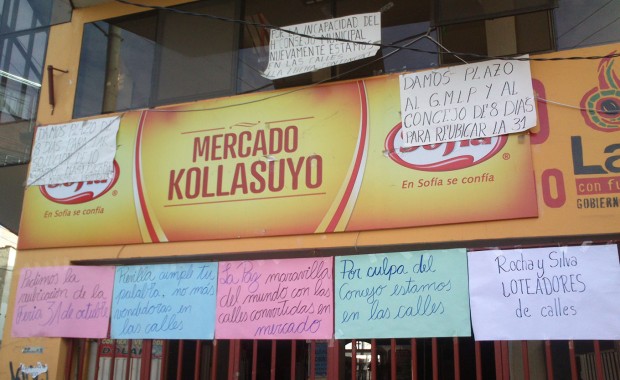 DE LA INCAPACIDAD DEL
H. CONSEJO MUNICIPAL
NUEVAMENTE ESTAMOS
EN LAS CALLES
DAMOS PLAZO
AL G.M.L.P Y AL
CONCEJO DE 8 DIAS
PARA REUBICAR LA 31
DAMOS PLAZO
MERCADO
KOLLASUYO
Sofía
En Sofía se confía
Sofía
En Sofía se confía
La
con fu
GOBIERNO
Pedimos la
reubicación de la
feria 31 de octubre
Revilla cumple tu
palabra, no más
vendedoras en
las calles
La Paz maravilla
del mundo con las
calles convertidas en
mercado
Por culpa del
Concejo estamos
en las calles
Rocha y Silva
LOTEADORES
de calles